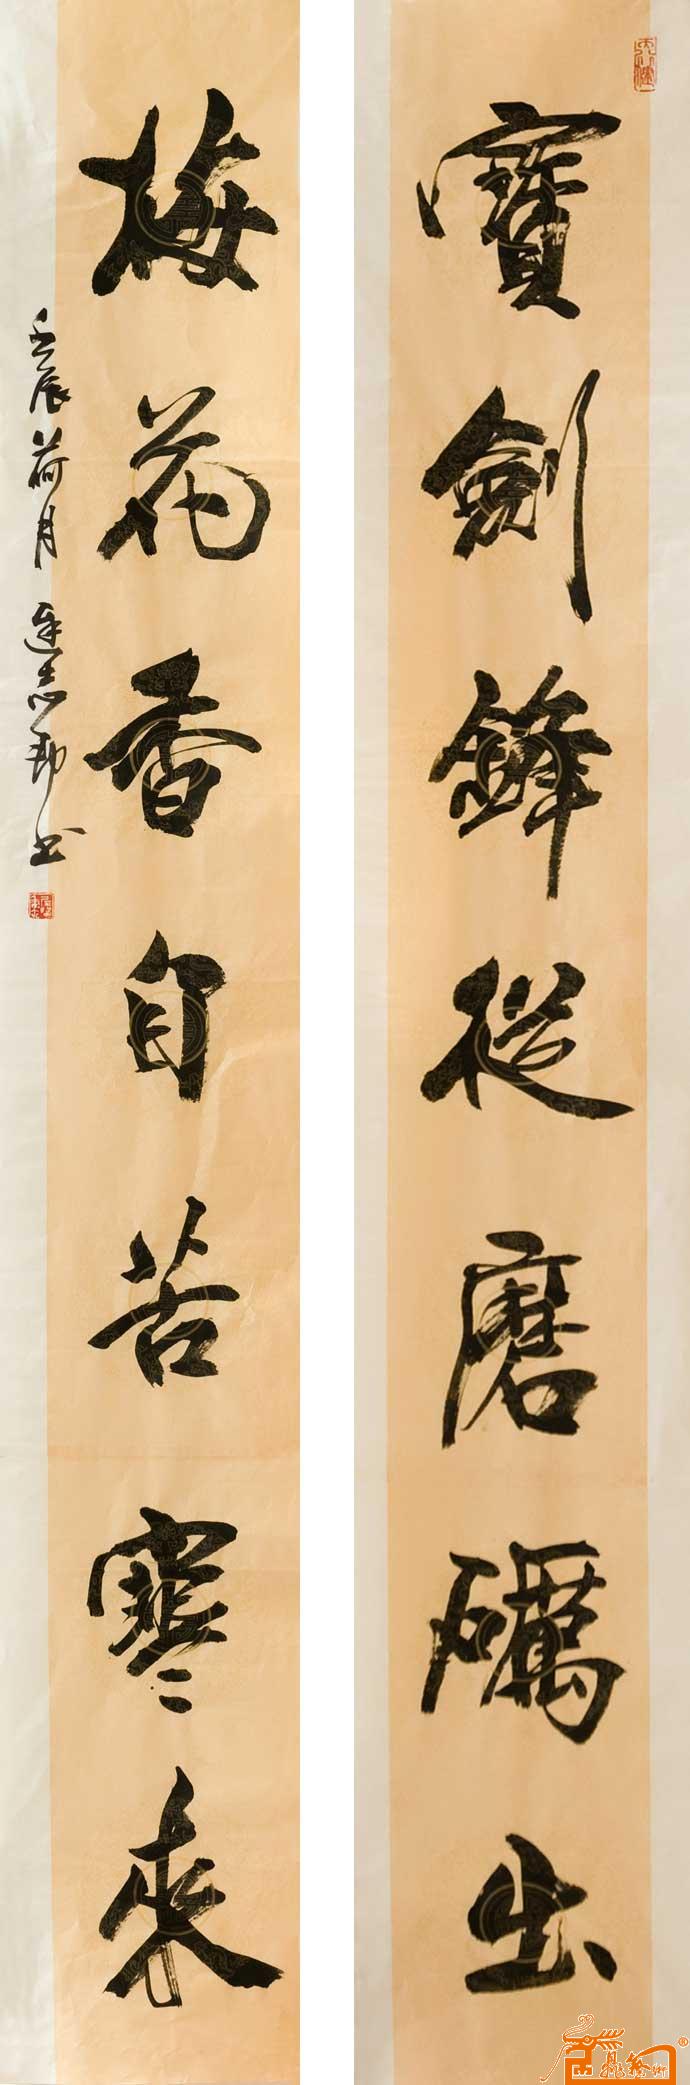 寶劍鋒從磨礪出
梅花香自苦寒來
壬辰荷月 連志勤书